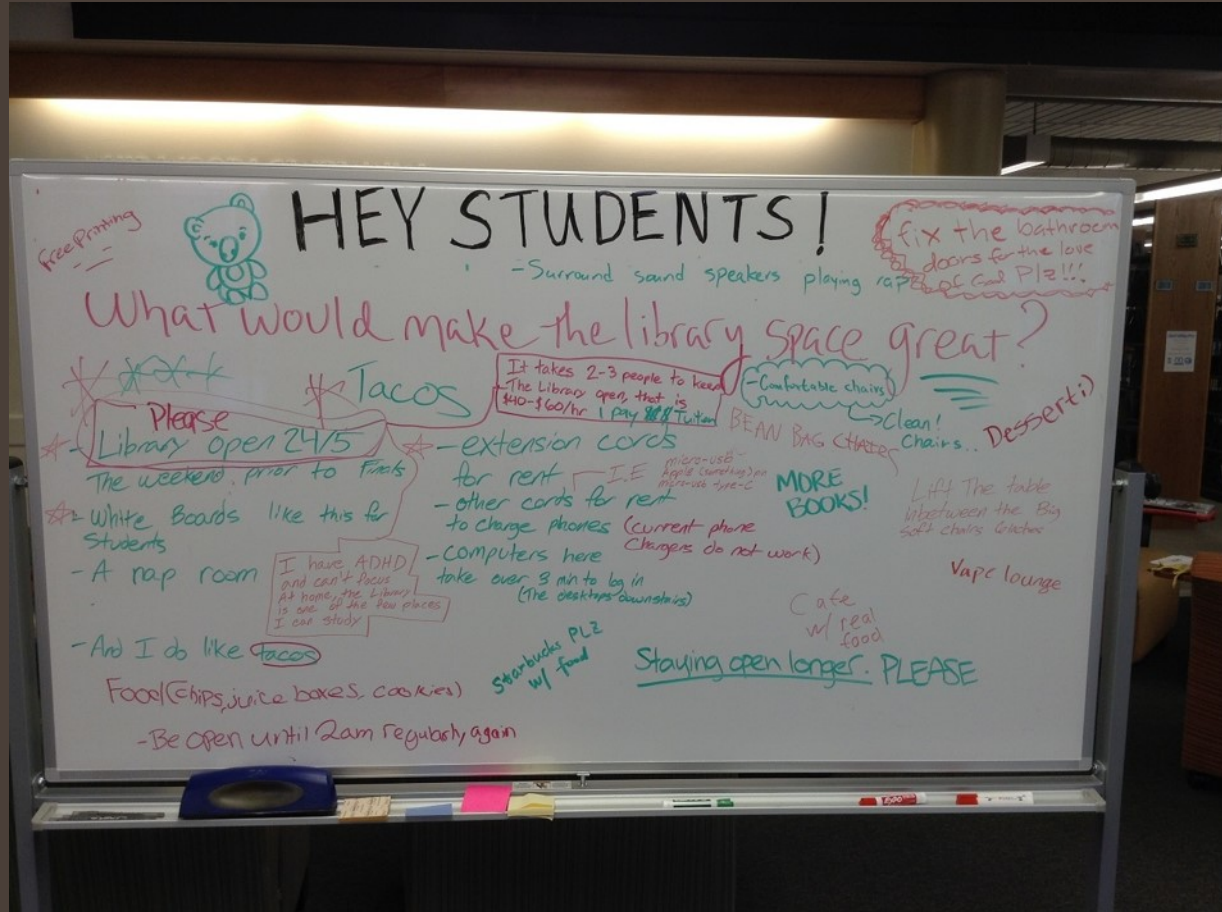 HEY STUDENTS!
Free Printing
- Surround sound speakers playing rap
fix the bathroom
doors for the love
of God Plz!!!
What would make the library space great?
Tacos
It takes 2-3 people to keep
The Library open, that is
$40-$60/hr I pay Tuition
- Comfortable chairs
→ Clean!
Chairs..
BEAN BAG CHAIRS
Dessert :)
Please
- Library open 24/5
The weekend prior to Finals
- White Boards like this for
Students
- A nap room
I have ADHD
and can't focus
At home, the Library
is one of the few places
I can study
- And I do like tacos
Food (Chips, juice boxes, cookies)
- Be open until 2am regularly again
- extension cords
for rent
I.E
micro-usb
Apple (something) pin
micro-usb type-C
- other cords for rent
to charge phones (current phone
Chargers do not work)
- computers here
take over 3 min to log in
(The desktops downstairs)
Starbucks PLZ
w/ food
MORE
BOOKS!
Lift The table
inbetween the Big
soft chairs 6 inches
Vape lounge
Cafe
w/ real
food
Staying open longer. PLEASE
EXPO